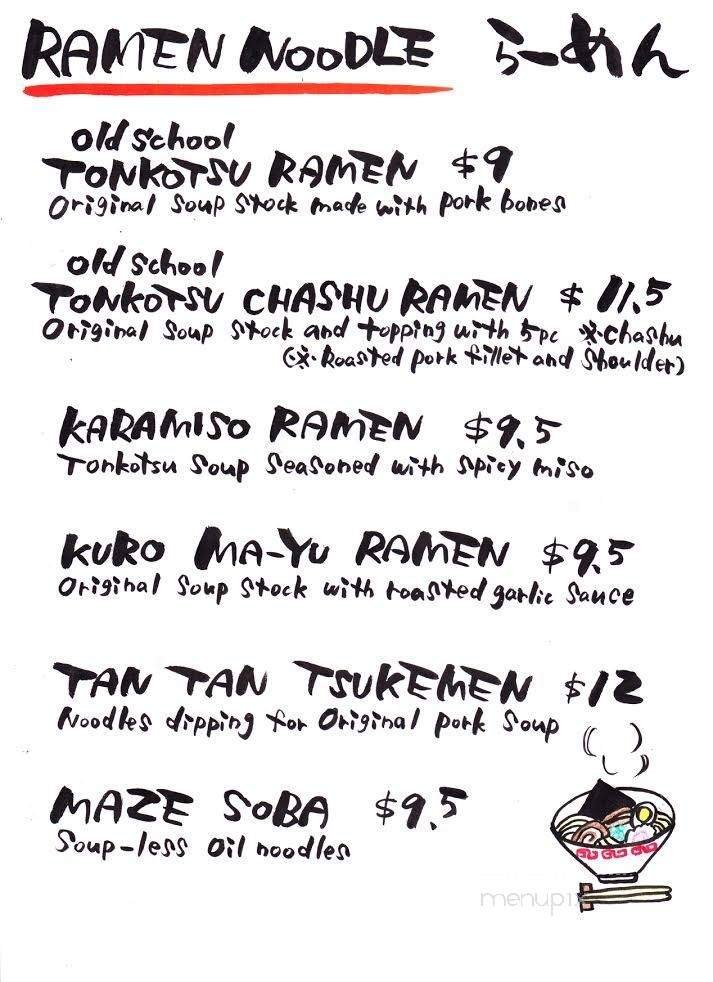 RAMEN NOODLE らーめん
Old School
TONKOTSU RAMEN $9
Original Soup Stock made with pork bones
Old School
TONKOTSU CHASHU RAMEN $11.5
Original Soup Stock and topping with 5pc ※Chashu
(※Roasted pork fillet and Shoulder)
KARAMISO RAMEN $9.5
Tonkotsu Soup Seasoned with Spicy miso
KURO MA-YU RAMEN $9.5
Original Soup Stock with roasted garlic Sauce
TAN TAN TSUKEMEN $12
Noodles dipping for Original pork Soup
MAZE SOBA $9.5
Soup-less Oil noodles